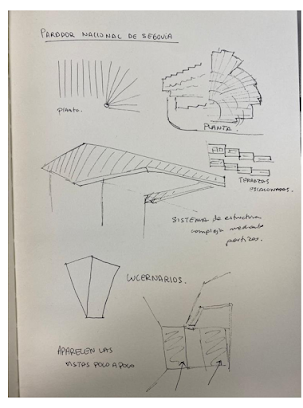 PARADOR NACIONAL DE SEGOVIA
PLANTA.
TERRAZAS
ESCALONADAS.
SISTEMA de estructura
compleja mediante
porticos.
LUCERNARIOS.
APARECEN LAS
VISTAS POCO A POCO